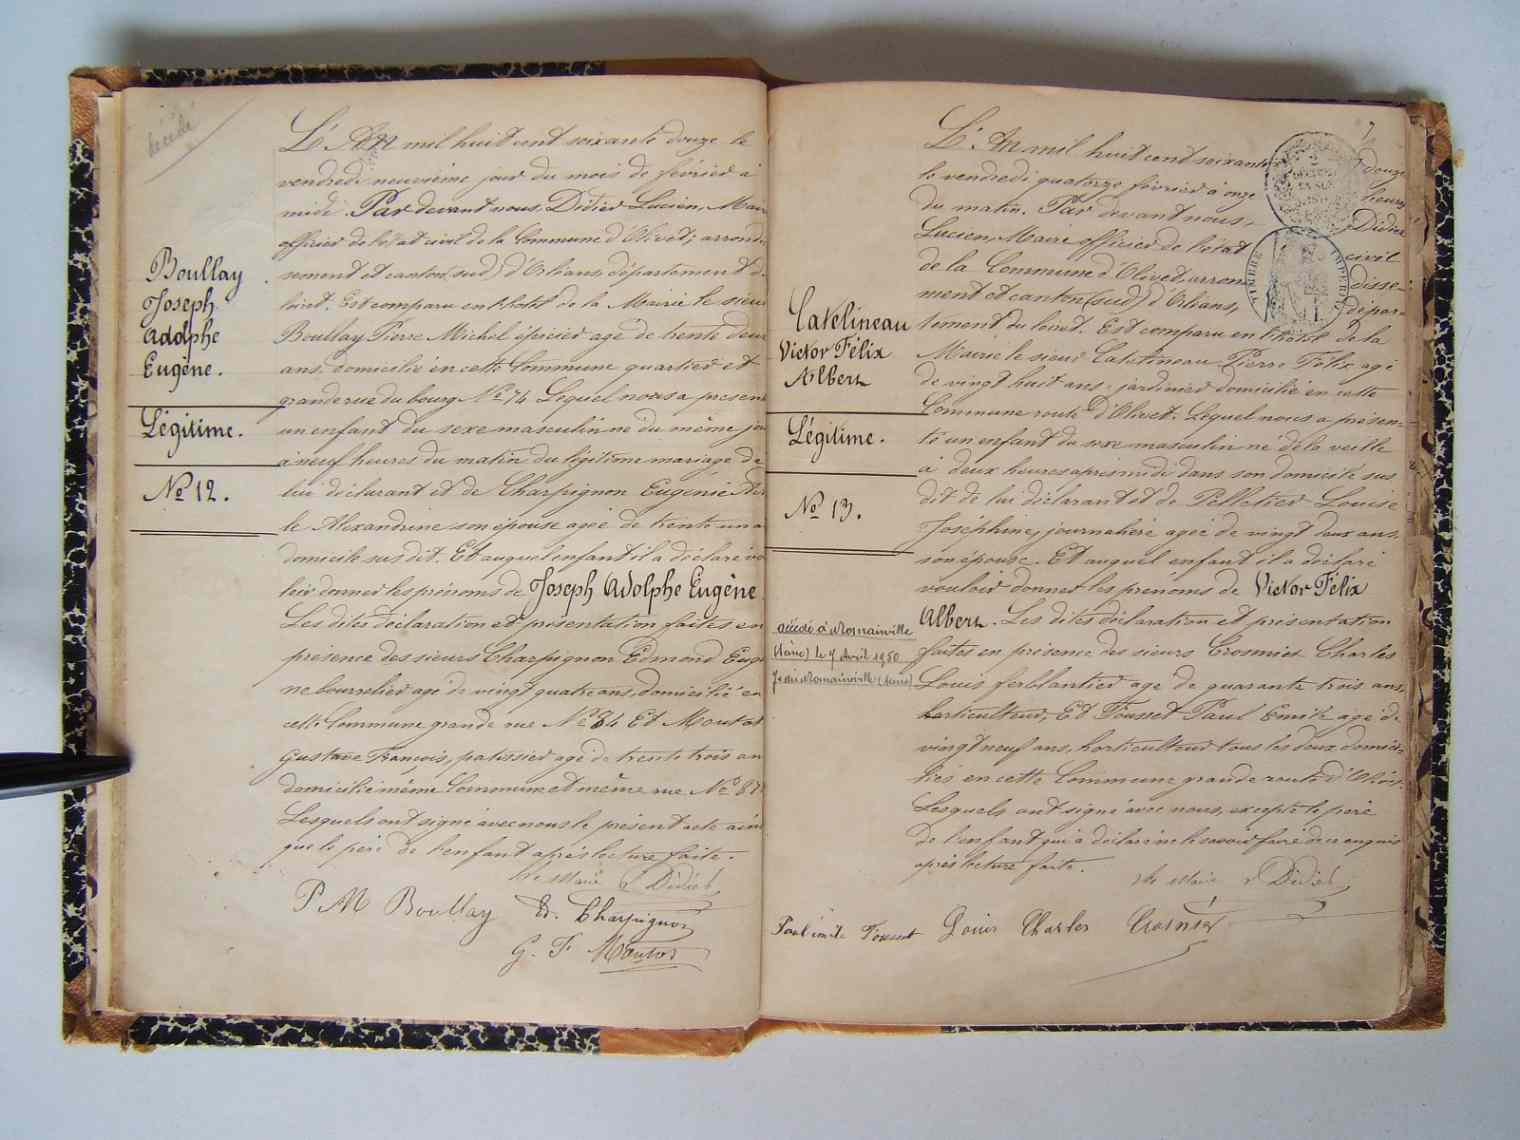 décédé
Boullay
Joseph
Adolphe
Eugène.
Légitime.
No 12.
L'An mil huit cent soixante douze le
vendredi neuvième jour du mois de février à
midi. Par devant nous, Didier Lucien, Maire
officier de l'état civil de la Commune d'Olivet, arrondis
sement et canton (sud) d'Orléans département d
loiret. Est comparu en l'hotel de la Mairie le sieur
Boullay Pierre Michel épicier agé de trente deux
ans domicilié en cette Commune quartier et
grande rue du bourg No 74 Lequel nous a présen
un enfant du sexe masculin né du même jou
à neuf heures du matin du légitime mariage de
lui déclarant et de Charpignon Eugénie
le Alexandrine son épouse agée de trente un a
domicile sus dit. Et auquel enfant il a déclaré vo
loir donner les prénoms de Joseph Adolphe Eugène
Les dites déclaration et présentation faites en
présence des sieurs Charpignon Edmond Eugè
ne bourrelier agé de vingt quatre ans, domicilié en
cette Commune grande rue No 84 Et Moutot
Gustave François, patissier agé de trente trois an
domicilié même Commune et même rue No 87
Lesquels ont signé avec nous le présent acte ain
que le père de l'enfant après lecture faite.
Le Maire L Didier
P M Boullay E. Charpignon
G. F Moutot
7
Catelineau
Victor Félix
Albert
Légitime.
No 13.
décédé à Romainville
(Seine) le 7 Avril 1950
Jedei Romainville (Seine)
L'An mil huit cent soixante douze
le vendredi quatorze février à onze heures
du matin. Par devant nous, Didier
Lucien, Maire officier de l'état civil
de la Commune d'Olivet, arrondisse-
ment et canton (sud) d'Orléans, dépar-
tement du loiret. Est comparu en l'hotel de la
Mairie le sieur Catelineau Pierre Félix agé
de vingt huit ans, jardinier domicilié en cette
Commune route d'Olivet. Lequel nous a présen-
té un enfant du sexe masculin né de la veille
à deux heures après midi dans son domicile sus
dit de lui déclarant et de Pelletier Louise
Joséphine, journalière agée de vingt deux ans,
son épouse. Et auquel enfant il a déclaré
vouloir donner les prénoms de Victor Félix
Albert. Les dites déclaration et présentation
faites en présence des sieurs Crosnier Charles
Louis ferblantier agé de quarante trois ans,
horticulteur, Et Fousset Paul Emile agé de
vingt neuf ans, horticulteur tous les deux domici-
liés en cette Commune grande route d'Olivet.
Lesquels ont signé avec nous, excepté le père
de l'enfant qui a déclaré ne le savoir faire de ce enquis
après lecture faite.
Le Maire L Didier
Paul émile Fousset Louis Charles Crosnier
TIMBRE IMPÉRIAL